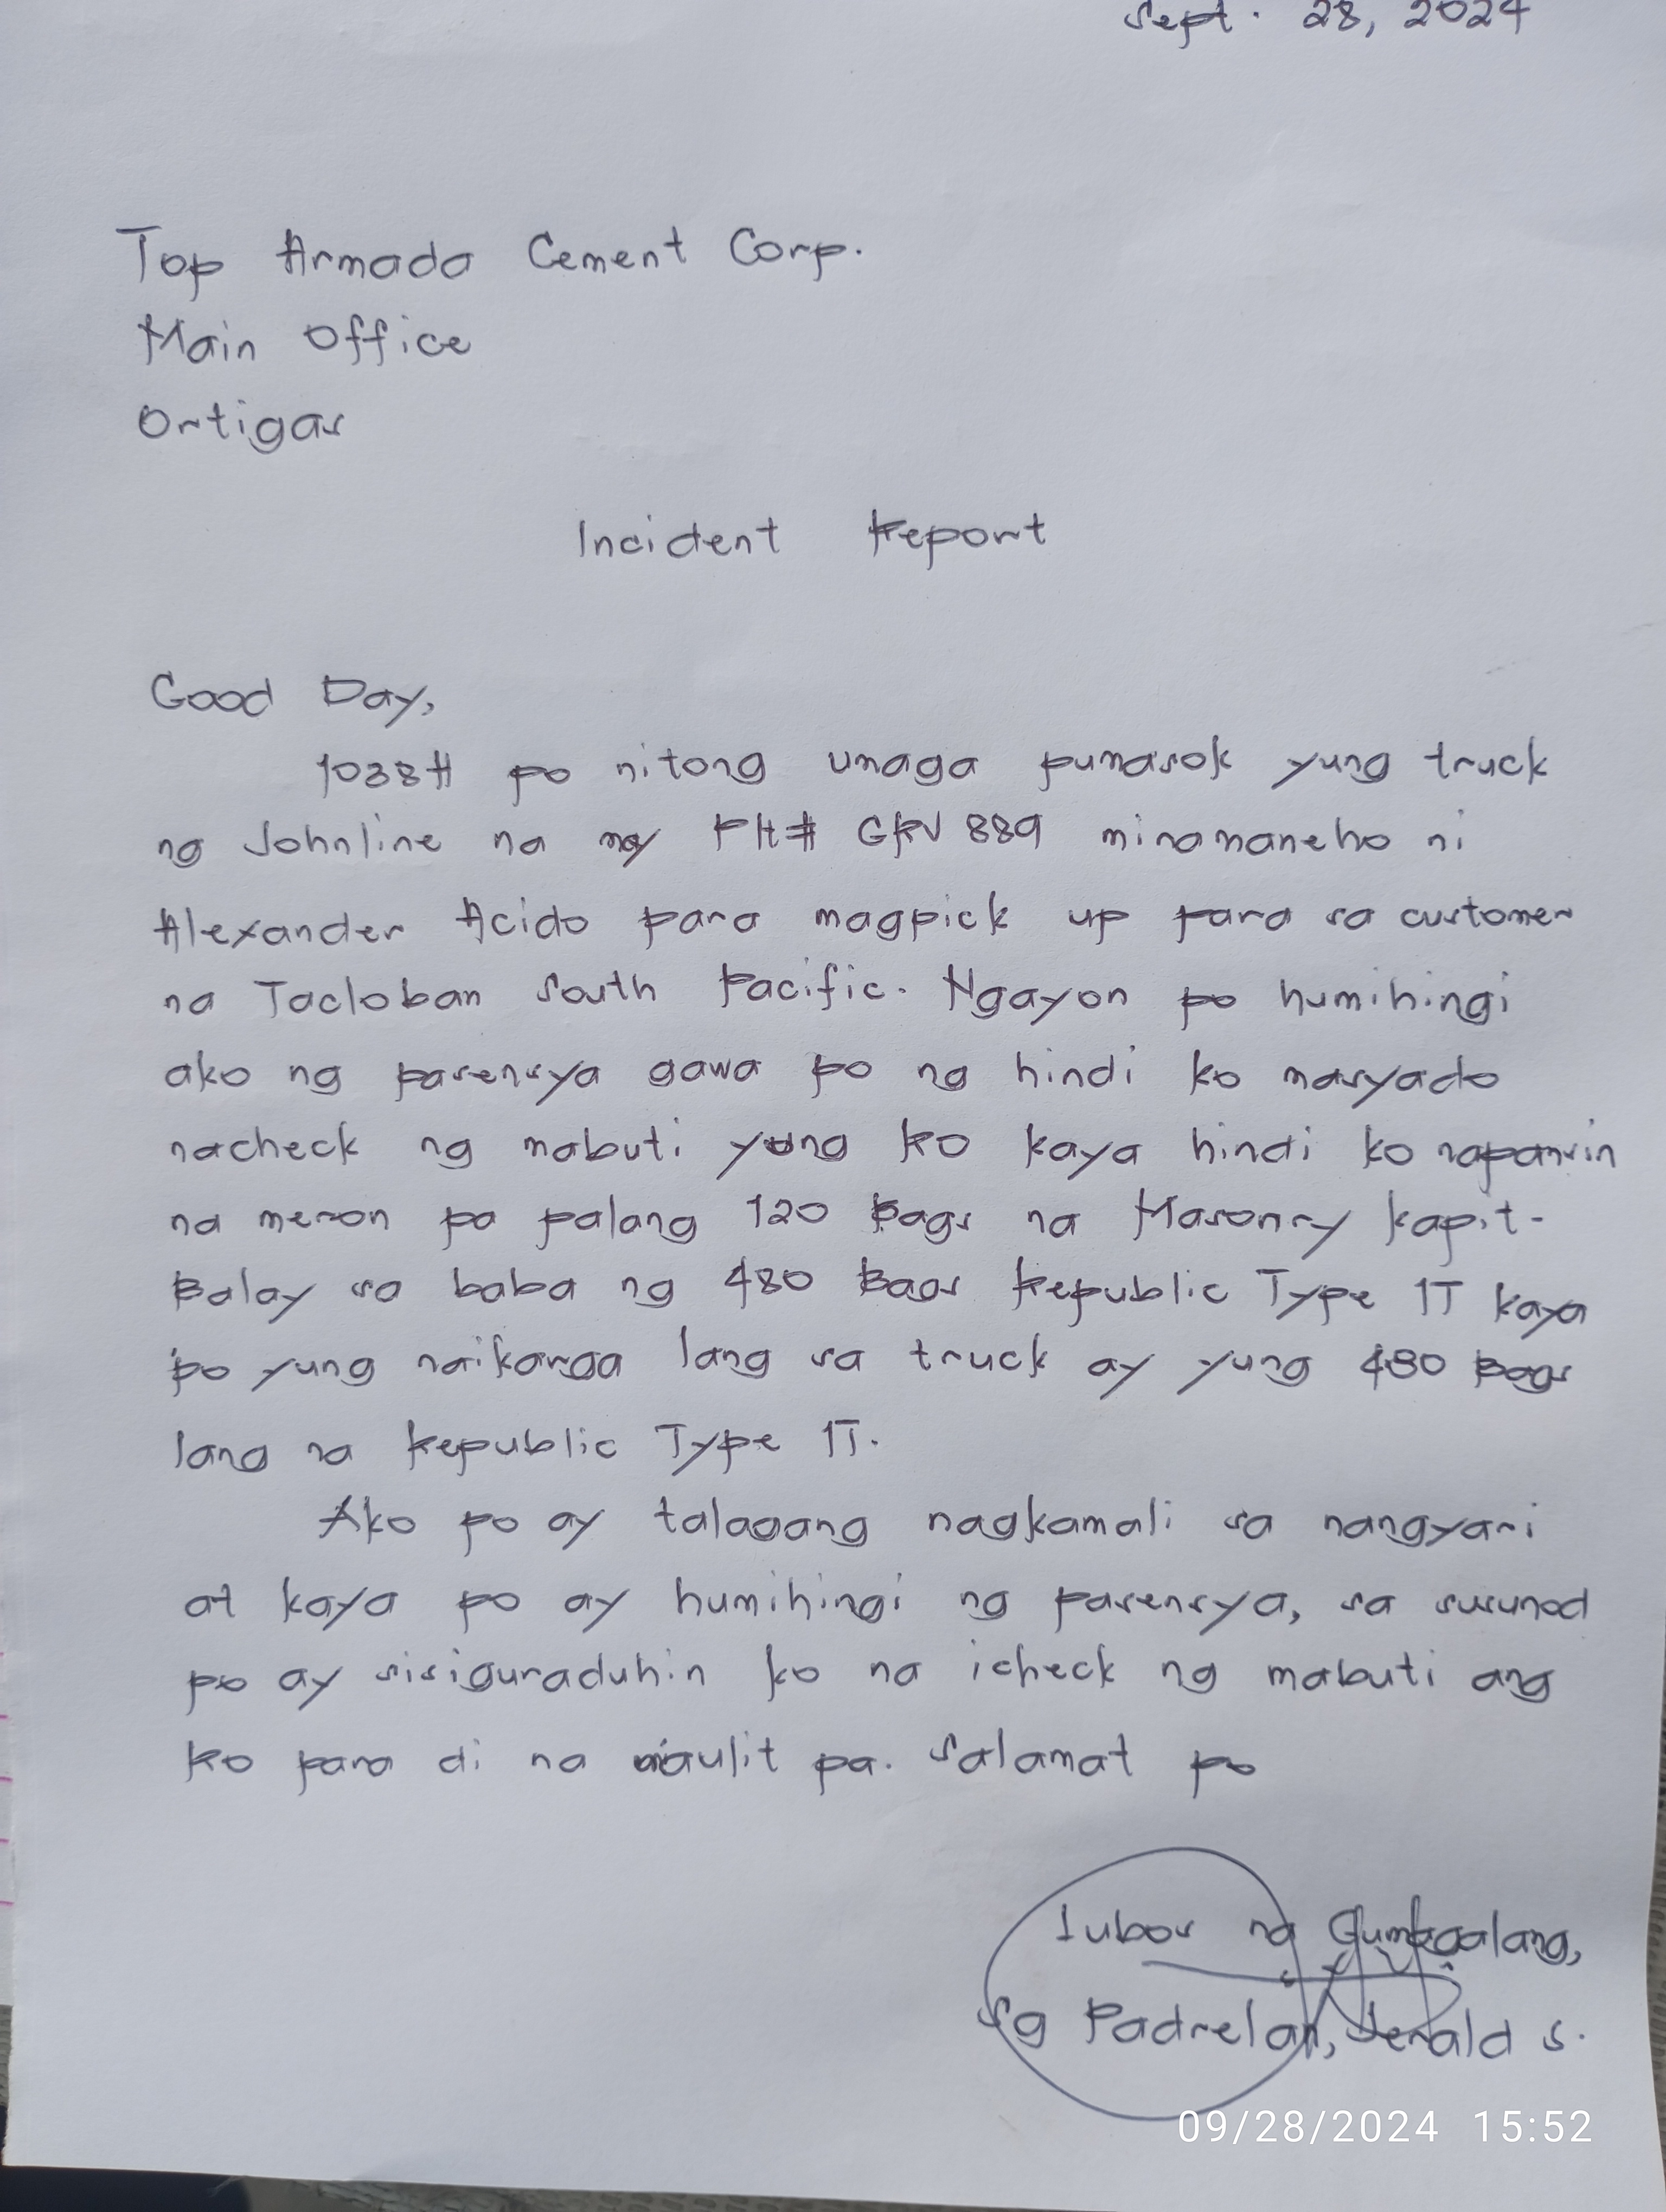 Sept. 28, 2024
Top Armada Cement Corp.
Main Office
Ortigas
Incident Report
Good Day,
1038H po nitong umaga pumasok yung truck
ng Johnline na may Plt# GRV 889 minamaneho ni
Alexander Acido para magpick up para sa customer
na Tacloban South Pacific. Ngayon po humihingi
ako ng pasensya gawa po ng hindi ko masyado
nacheck ng mabuti yung RO kaya hindi ko napansin
na meron pa palang 120 Bags na Masonry Kapit-
Balay sa baba ng 480 Bags Republic Type 1T kaya
po yung naikarga lang sa truck ay yung 480 Bags
lang na Republic Type 1T.
Ako po ay talagang nagkamali sa nangyari
at kaya po ay humihingi ng pasensya, sa susunod
po ay sisiguraduhin ko na icheck ng mabuti ang
RO para di na maulit pa. Salamat po
Lubos na Gumagalang,
SG Padrelan, Jerald S.
09/28/2024 15:52